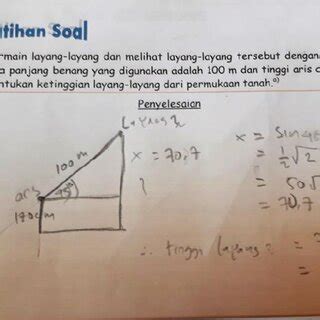 tihan Soal
rmain layang-layang dan melihat layang-layang tersebut dengan
a panjang benang yang digunakan adalah 100 m dan tinggi aris
entukan ketinggian layang-layang dari permukaan tanah.
Penyelesaian
100 m
x = 70,7
x = Sin
= 1/2 √2
= 50√
= 70,7
aris
170 cm
∴ tinggi layang =
=